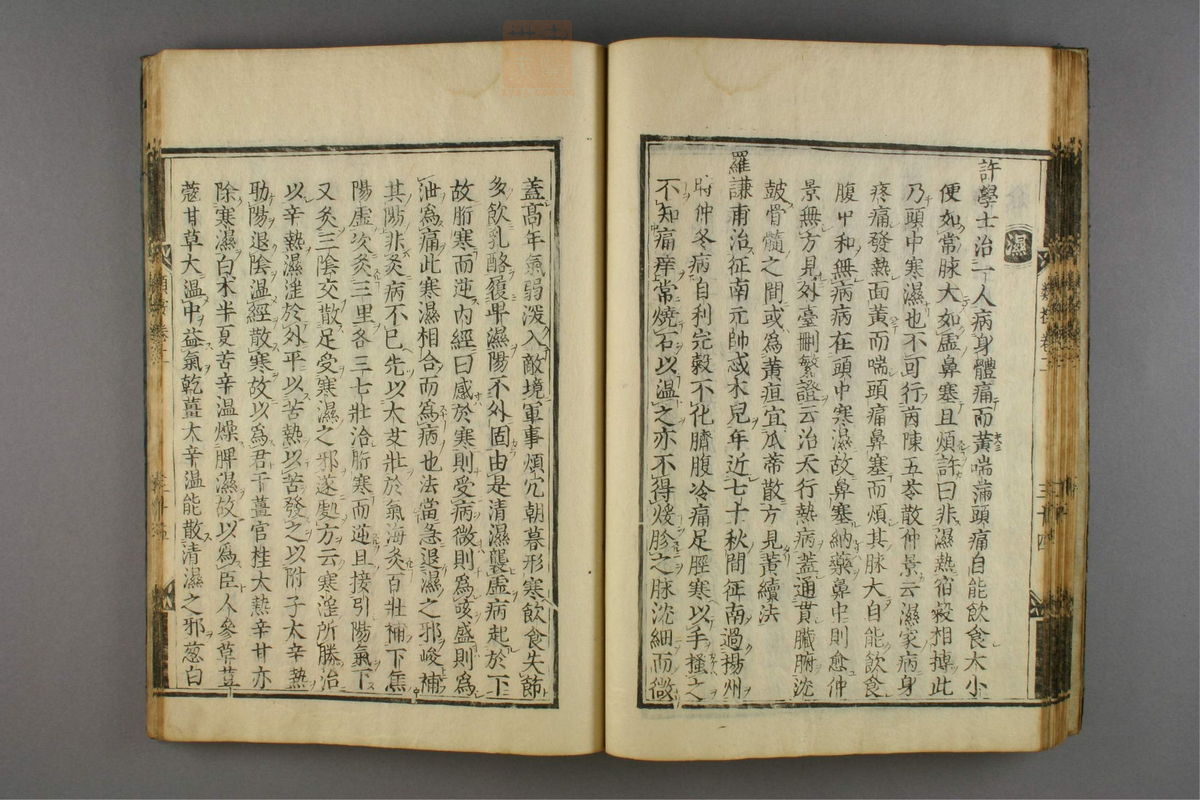 濕
許學士治一人病身體痛而黃喘滿頭痛自能飲食大小
便如常脉大如虛鼻塞且煩許曰非濕熱宿穀相摶此
乃頭中寒濕也不可行茵陳五苓散仲景云濕家病身
疼痛發熱面黃而喘頭痛鼻塞而煩其脉大自能飲食
腹中和無病病在頭中寒濕故鼻塞納藥鼻中則愈仲
景無方見外臺刪繁證云治天行熱病蓋通貫臟腑沈
鼓骨髓之間或為黃疸宜瓜蒂散方見黃續法
羅謙甫治征南元帥忒木兒年近七十秋間征南過揚州
時仲冬病自利完穀不化臍腹冷痛足脛寒以手搔之
不知痛痒常燒石以溫之亦不得煖胗之脉沈細而微
蓋高年氣弱深入敵境軍事煩冗朝暮形寒飲食失節
多飲乳酪履卑濕陽不外固由是清濕襲虛病起於下
故胻寒而逆內經曰感於寒則受病微則為咳盛則為
泄為痛此寒濕相合而為病也法當急退濕之邪峻補
其陽非灸病不已先以大艾壯於氣海灸百壯補下焦
陽虛次灸三里各三七壯治胻寒而逆且接引陽氣下
又灸三陰交散足受寒濕之邪遂處方云寒淫所勝治
以辛熱濕淫於外平以苦熱以苦發之以附子大辛熱
助陽退陰溫經散寒故以為君干薑官桂大熱辛甘亦
除寒濕白朮半夏苦辛溫燥脾濕故以為臣人參草荳
蔻甘草大溫中益氣乾薑大辛溫能散清濕之邪葱白